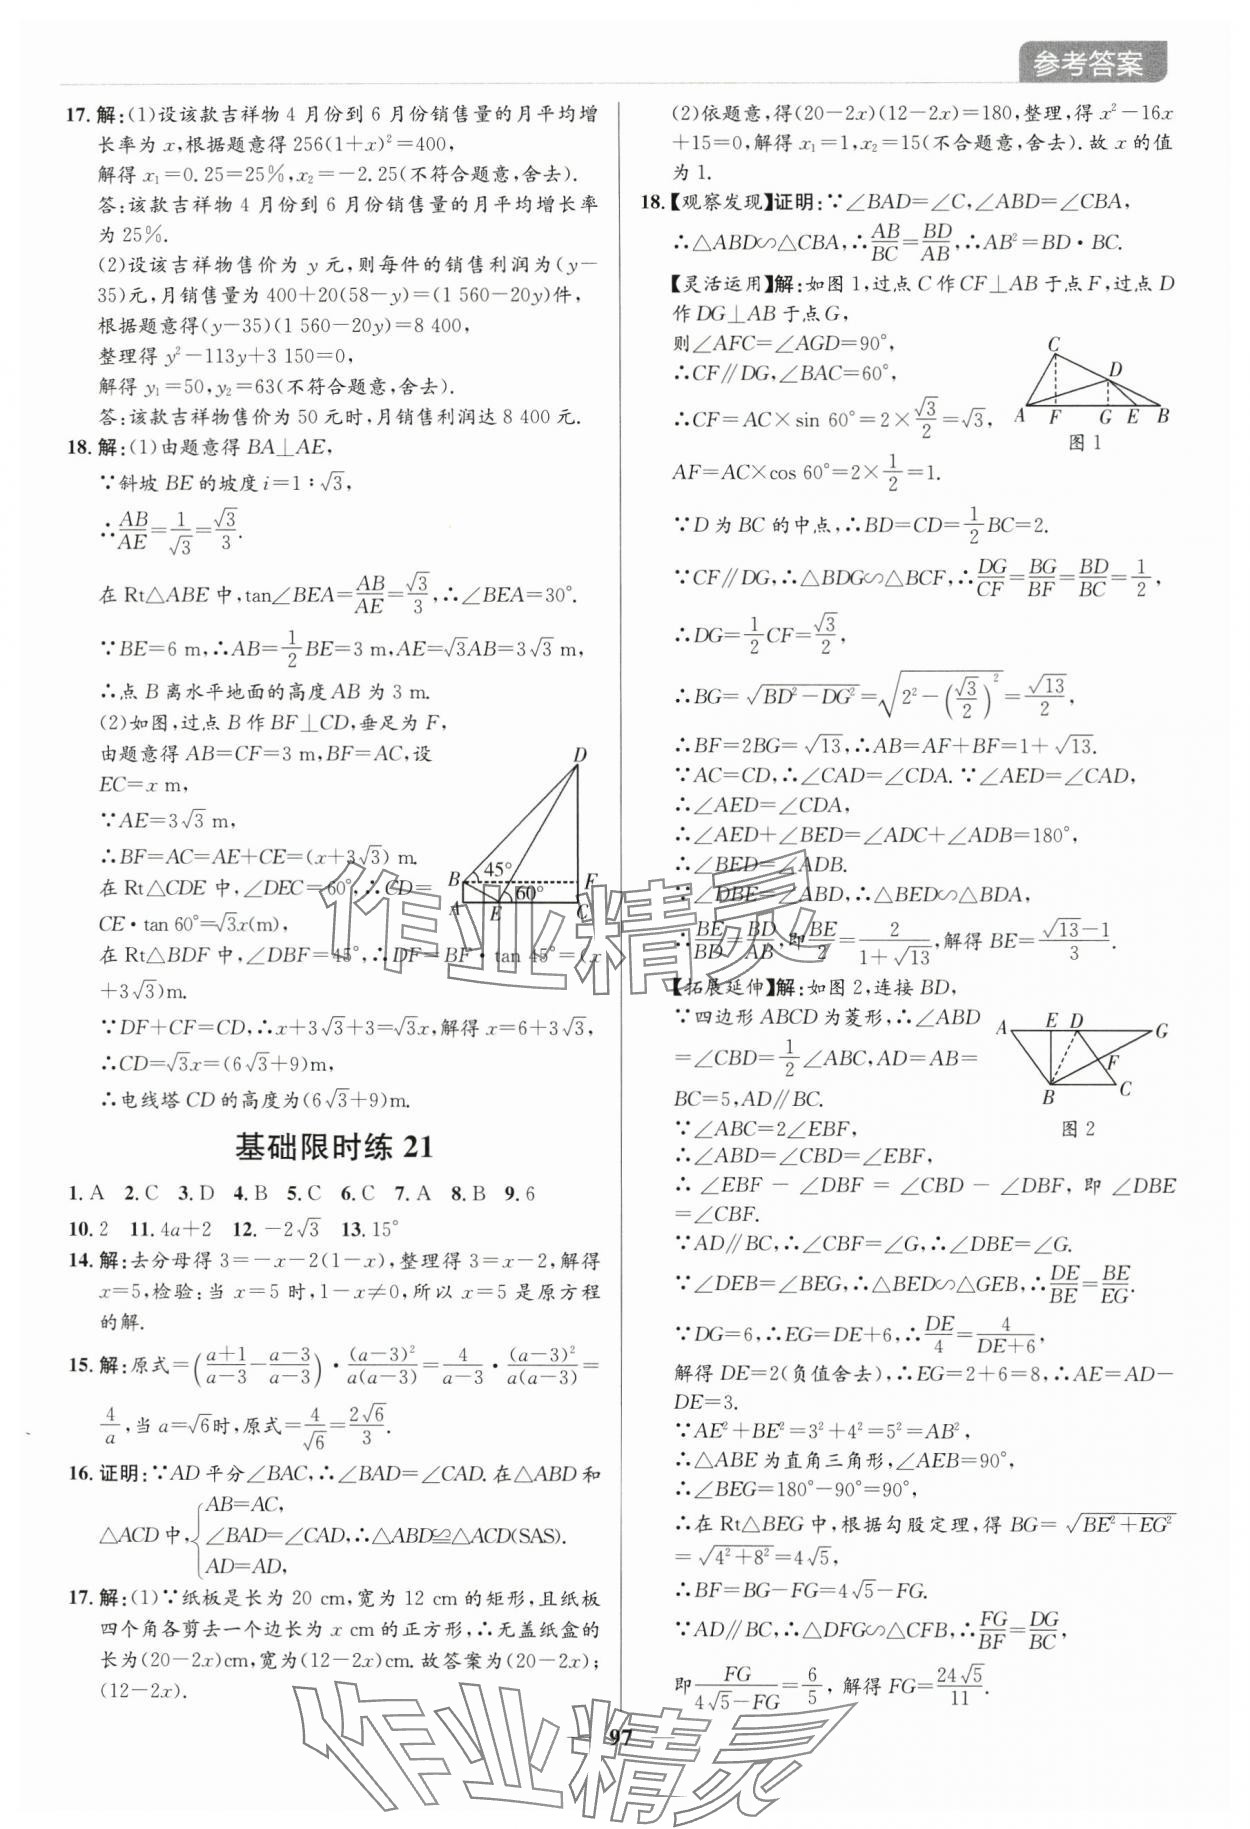 参考答案
17. 解:(1)设该款吉祥物 4 月份到 6 月份销售量的月平均增
长率为 x,根据题意得 256(1+x)²=400,
解得 x₁=0.25=25%,x₂=-2.25(不符合题意,舍去).
答:该款吉祥物 4 月份到 6 月份销售量的月平均增长率
为 25%.
(2)设该吉祥物售价为 y 元,则每件的销售利润为(y-
35)元,月销售量为 400+20(58-y)=(1 560-20y)件,
根据题意得(y-35)(1 560-20y)=8 400,
整理得 y²-113y+3 150=0,
解得 y₁=50,y₂=63(不符合题意,舍去).
答:该款吉祥物售价为 50 元时,月销售利润达 8 400 元.
18. 解:(1)由题意得 BA⊥AE,
∵斜坡 BE 的坡度 i=1∶√3,
∴AB/AE=1/√3=√3/3.
在 Rt△ABE 中,tan∠BEA=AB/AE=√3/3,∴∠BEA=30°.
∵BE=6 m,∴AB=1/2BE=3 m,AE=√3AB=3√3 m,
∴点 B 离水平地面的高度 AB 为 3 m.
(2)如图,过点 B 作 BF⊥CD,垂足为 F,
由题意得 AB=CF=3 m,BF=AC,设
EC=x m,
∵AE=3√3 m,
∴BF=AC=AE+CE=(x+3√3) m.
在 Rt△CDE 中,∠DEC=60°,∴CD=
CE·tan 60°=√3x(m),
在 Rt△BDF 中,∠DBF=45°,∴DF=BF·tan 45°=(x
+3√3)m.
∵DF+CF=CD,∴x+3√3+3=√3x,解得 x=6+3√3,
∴CD=√3x=(6√3+9)m.
∴电线塔 CD 的高度为(6√3+9)m.
D
B 45° F
A E 60° C
基础限时练 21
1. A 2. C 3. D 4. B 5. C 6. C 7. A 8. B 9. 6
10. 2 11. 4a+2 12. -2√3 13. 15°
14. 解:去分母得 3=-x-2(1-x),整理得 3=x-2,解得
x=5,检验:当 x=5 时,1-x≠0,所以 x=5 是原方程
的解.
15. 解:原式=((a+1)/(a-3)-(a-3)/(a-3))·(a-3)²/a(a-3)=4/(a-3)·(a-3)²/a(a-3)=
4/a,当 a=√6时,原式=4/√6=2√6/3.
16. 证明:∵AD 平分∠BAC,∴∠BAD=∠CAD.在△ABD 和
△ACD 中,{AB=AC,
∠BAD=∠CAD,∴△ABD≌△ACD(SAS).
AD=AD,
17. 解:(1)∵纸板是长为 20 cm,宽为 12 cm 的矩形,且纸板
四个角各剪去一个边长为 x cm 的正方形,∴无盖纸盒的
长为(20-2x)cm,宽为(12-2x)cm.故答案为(20-2x);
(12-2x).
(2)依题意,得(20-2x)(12-2x)=180,整理,得 x²-16x
+15=0,解得 x₁=1,x₂=15(不合题意,舍去).故 x 的值
为 1.
18. 【观察发现】证明:∵∠BAD=∠C,∠ABD=∠CBA,
∴△ABD∽△CBA,∴AB/BC=BD/AB,∴AB²=BD·BC.
【灵活运用】解:如图 1,过点 C 作 CF⊥AB 于点 F,过点 D
作 DG⊥AB 于点 G,
则∠AFC=∠AGD=90°,
∴CF∥DG,∠BAC=60°,
∴CF=AC×sin 60°=2×√3/2=√3,
AF=AC×cos 60°=2×1/2=1.
C
D
A F G E B
图 1
∵D 为 BC 的中点,∴BD=CD=1/2BC=2.
∵CF∥DG,∴△BDG∽△BCF,∴DG/CF=BG/BF=BD/BC=1/2,
∴DG=1/2CF=√3/2,
∴BG=√(BD²-DG²)=√(2²-(√3/2)²)=√13/2,
∴BF=2BG=√13,∴AB=AF+BF=1+√13.
∵AC=CD,∴∠CAD=∠CDA.∵∠AED=∠CAD,
∴∠AED=∠CDA,
∴∠AED+∠BED=∠ADC+∠ADB=180°,
∴∠BED=∠ADB.
∵∠DBE=∠ABD,∴△BED∽△BDA,
∴BE/BD=BD/AB,即BE/2=2/(1+√13),解得 BE=(√13-1)/3.
【拓展延伸】解:如图 2,连接 BD,
∵四边形 ABCD 为菱形,∴∠ABD
=∠CBD=1/2∠ABC,AD=AB=
BC=5,AD∥BC.
∵∠ABC=2∠EBF,
A E D G
F
B C
图 2
∴∠ABD=∠CBD=∠EBF,
∴∠EBF-∠DBF=∠CBD-∠DBF,即∠DBE
=∠CBF.
∵AD∥BC,∴∠CBF=∠G,∴∠DBE=∠G.
∵∠DEB=∠BEG,∴△BED∽△GEB,∴DE/BE=BE/EG.
∵DG=6,∴EG=DE+6,∴DE/4=4/(DE+6),
解得 DE=2(负值舍去),∴EG=2+6=8,∴AE=AD-
DE=3.
∵AE²+BE²=3²+4²=5²=AB²,
∴△ABE 为直角三角形,∠AEB=90°,
∴∠BEG=180°-90°=90°,
∴在 Rt△BEG 中,根据勾股定理,得 BG=√(BE²+EG²)
=√(4²+8²)=4√5,
∴BF=BG-FG=4√5-FG.
∵AD∥BC,∴△DFG∽△CFB,∴FG/BF=DG/BC,
即FG/(4√5-FG)=6/5,解得 FG=24√5/11.
97
作业精灵
作业精灵